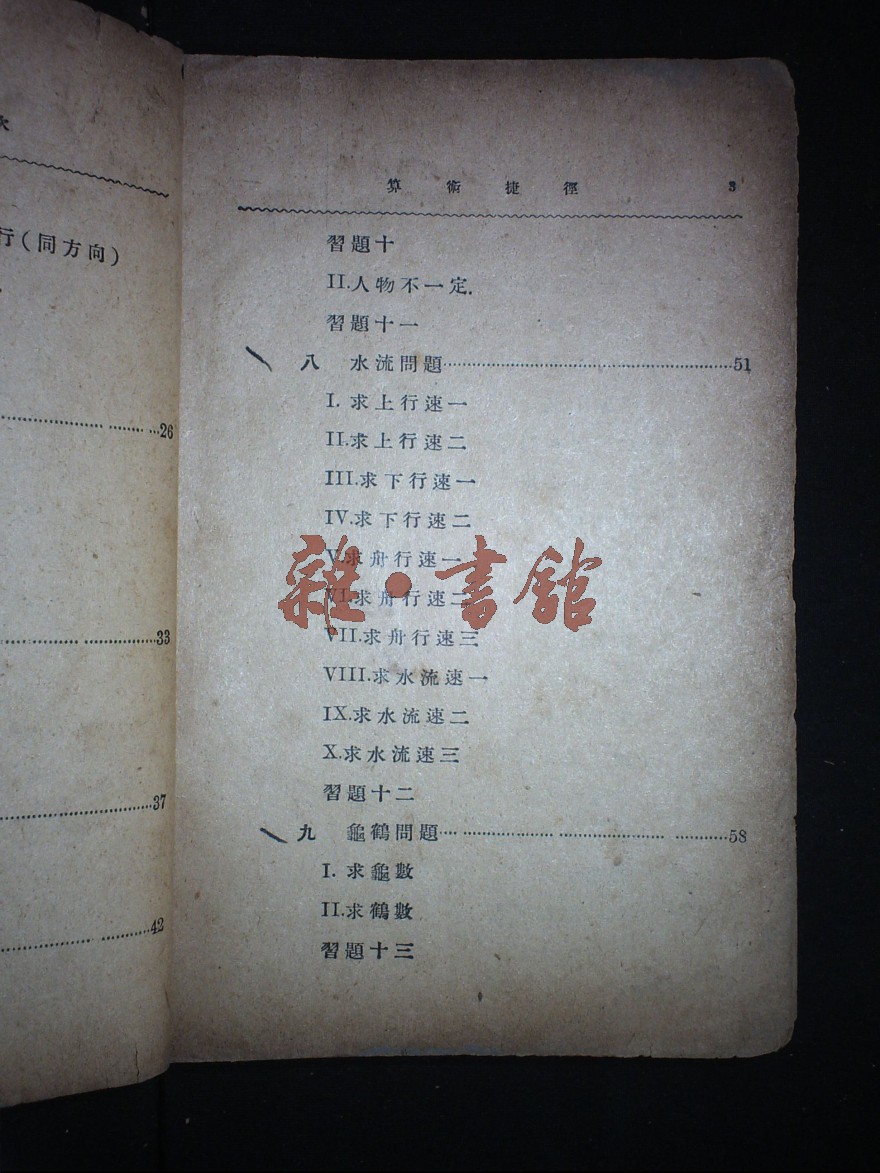 行(同方向)
26
33
37
42
算術捷徑 3
習題十
II.人物不一定.
習題十一
八 水流問題 51
I. 求上行速一
II.求上行速二
III.求下行速一
IV.求下行速二
V.求舟行速一
VI.求舟行速二
VII.求舟行速三
VIII.求水流速一
IX.求水流速二
X.求水流速三
習題十二
九 龜鶴問題 58
I. 求龜數
II.求鶴數
習題十三
雜·書館